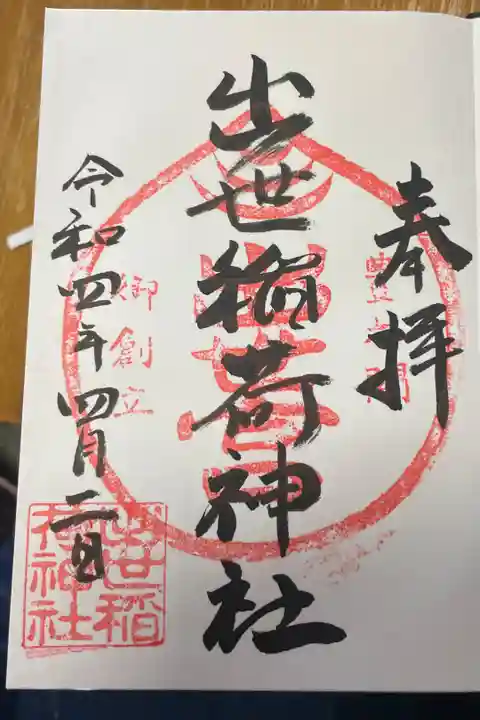 奉拝
豊太閤
出世稲荷神社
御創立
令和四年四月二日
出世稲
荷神社